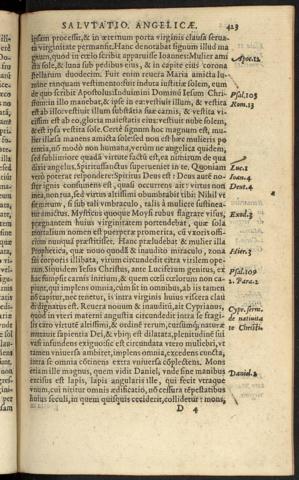 SALVTATIO. ANGELICÆ. 423
ipsam processit, & in æternum porta virginis clausa serua-
ta virginitate permansit. Hanc denotabat signum illud ma
gnum, quod in cœlo scribit apparuisse Ioannes: Mulier ami
cta sole, & luna sub pedibus eius, & in capite eius corona
stellarum duodecim. Fuit enim reuera Maria amicta lu-
mine tanquam vestimento: fuit induta iustitiæ solem, cum
de quo scribit Apostolus: Induimini Dominũ Iesum Christum
sole
est ab illo: vestiuit illum substātia suæ carnis, & vestita vi-
cissim est ab eo gloria maiestatis eius: vestiuit nube solem,
& est ipsa vestita sole. Certè signum hoc magnum est, mu-
lier illæsa manens amicta sole: sed non est hæc mulieris po
tentia, nō modò non humana, verùm ne angelica quidem,
sed sublimiore quadā virtute factū est, ea nimirum de qua
dixit angelus, Spiritus sanctus superueniet in te. Quoniam
verò poterat respondere: Spiritus Deus est: Deus autē no-
ster ignis consumens est, quasi occurrens ait: virtus non
mea, non tua, sed virtus altissimi obumbrabit tibi. Nihil vt
mirum, si sub tali vmbraculo, talis à muliere sustinea-
tur amictus. Mysticus quoque Moysi rubus flagrare visus,
prægnantem huius virginitatem portendebat, quæ sola
mortalium nomen est puerperæ promerita, cū vxoris offi-
cium nunquā præstitisset. Hanc præludebat & mulier illa
Prophetica, quæ nouo quodā & inaudito miraculo, zona
sui corporis illibata, virum circundedit citra virilem ope-
ram. Siquidem Iesus Christus, ante Luciferum genitus, ex
hac sumpsit carnis initium, & quem cœli cœlorum non ca-
piunt, qui implens omnia, cùm sit in omnibus, ab iis tamen
nō capitur, nec tenetur, is intra virginis huius viscera clau
di dignatus est. Reuera nouum & inauditū, ait Cyprianus,
quod in vteri materni angustiis circundedit intra se fragi-
lis caro virtutē altissimi, & ordinē rerum, cursumq; naturæ
mutauit sapientia Dei, & vbiq; est dilatata, plenitudinē sui
vasi infundens exiguo: sic est circundata vtero muliebri, vt
tamen vniuersa ambiret, implens omnia, excedens cuncta,
intra se omnia cōtinens extra vniuersa cōplectens. Mons
etiam ille magnus, quem vidit Daniel, vnde sine manibus
excisus est lapis, lapis angularis ille, qui fecit vtraque
vnum, cui nititur omnis ædificatio, nō cessura tēpestatibus
huius seculi, in quem quisquis ceciderit, collidetur: mons,
D 4
Apoc. 12
Psal. 103
Rom. 13
Luc. 1
Ioan. 4
Deut. 4
Exod. 3
Hier. 3
Psal. 109
2. Para. 2
Cyp. serm.
de natiuita
te Christi.
Daniel. 2